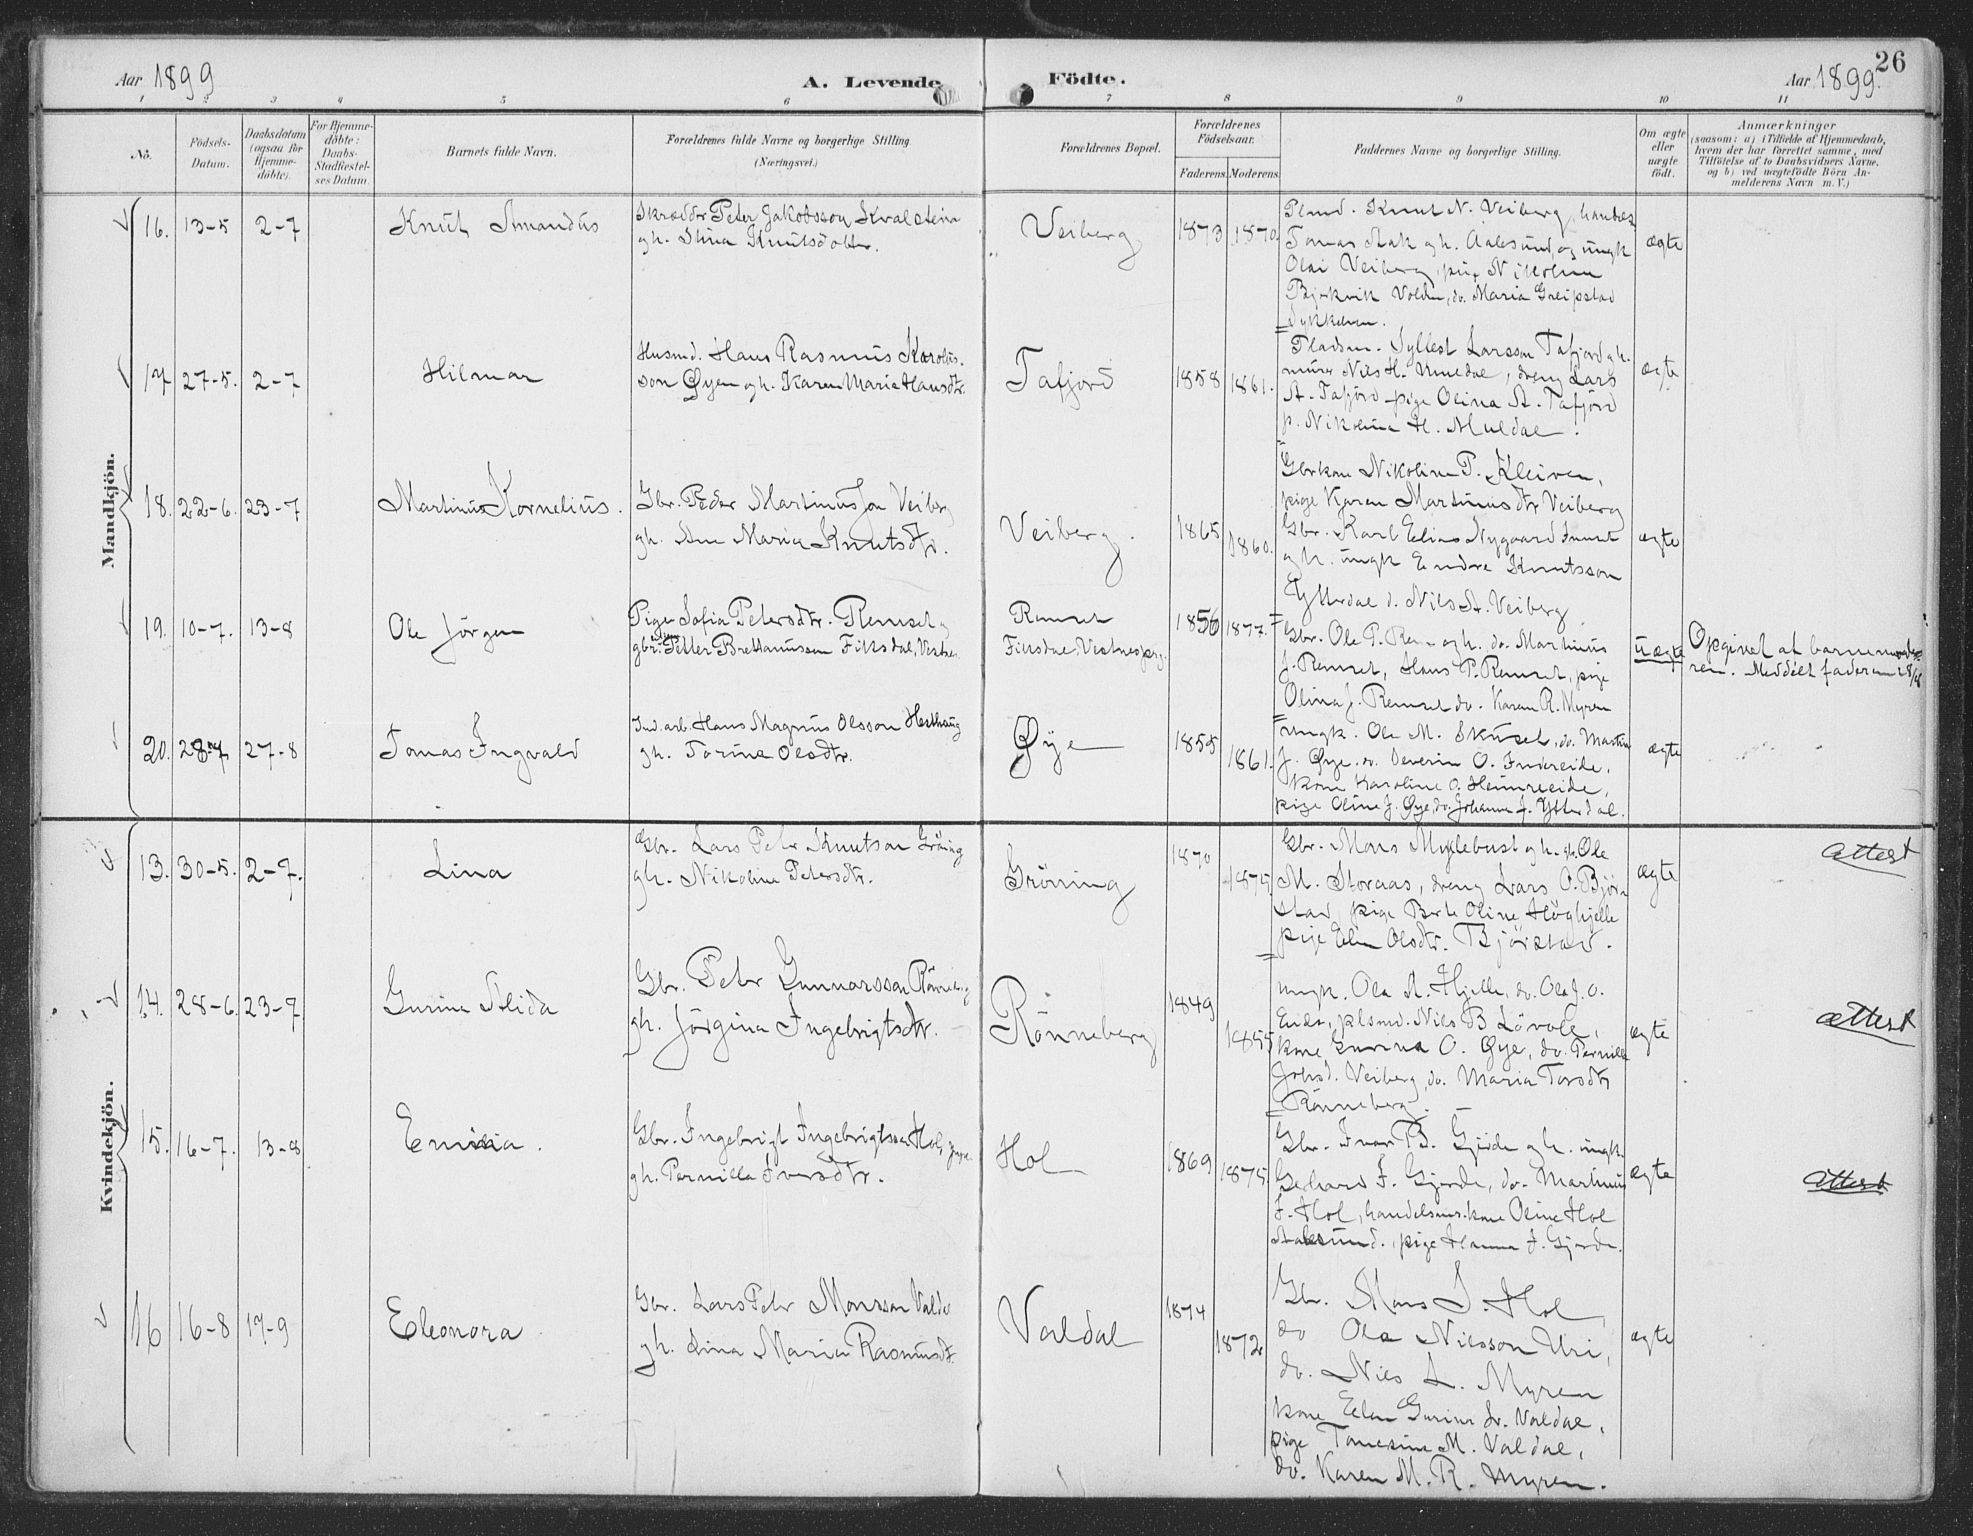 26
Aar 1899
A. Levende Födte.
Aar 1899.
1 2 3 4 5 6 7 8 9 10 11
No.
Födsels-
Datum.
Daabsdatum
(ogsaa for
Hjemme-
döbte).
For Hjemme-
döbte:
Daabs-
Stadfæstel-
ses Datum.
Barnets fulde Navn.
Forældrenes fulde Navne og borgerlige Stilling.
(Næringsvei.)
Forældrenes Bopæl.
Forældrenes
Födselsaar.
Faderens. Moderens.
Faddernes Navne og borgerlige Stilling.
Om ægte
eller
uægte
födt.
Anmærkninger
(saasom: a) i Tilfælde af Hjemmedaab,
hvem der har forrettet samme, med
Tilföielse af to Daabsvidners Navne,
og b) ved uægtefödte Börn An-
melderens Navn m. V.)
Mandkjön.
16. 13-5 2-7
Knut Amandus
Skrædder Peter Jakobsson Kvalstein
gh. Stina Knutsdotter.
Veiberg
1873 1870
Plmd. Knut N. Veiberg,
Tomas Aak gh. Aalesund, og ungk
Olai Veiberg, pige Nikolina
Bjørkvik Volden, do. Maria Greipstad
Sykkelven.
ægte
17 27-5. 2-7
Hilmar
Husmd. Hans Rasmus Karolus-
son Øyen gh. Karen Maria Hansdtr.
Tafjord
1858 1861.
Pladsm. Syllest Larsson Tafjord gh.
murer Nils H. Muldal, dreng Lars
A. Tafjord pige Olina A. Tafjord
p. Nikolina H. Muldal.
ægte
18. 22-6. 23-7
Martinus Kornelius.
Gbr. Peder Martinus Jon Veiberg
gh. Ane Maria Knutsdtr.
Veiberg.
1865 1860.
Gbrkone Nikoline P. Kleiven,
pige Karen Martinusdtr Veiberg
Gbr. Karl Elias Nygaard
gh. ungk Endre Knutsson
Ytterdal d. Nils A. Veiberg
ægte
19. 10-7. 13-8
Ole Jörgen
Pige Sofia Petersdtr. Remset og
gbr. Petter Brettanussen Fiksdal, Vestnes
Remset
Fiksdal, Vestnes prg.
1856 1877.
Gbr. Ole P. Rem gh. do. Martinus
J. Remset, Hans P. Remset, pige
Olina J. Remset do. Karen R. Myren
uægte
Opgivet af barnemode-
ren. Meddelt faderen 28/8
20. 28-7 27-8
Tomas Ingvald
Ind. arb. Hans Magnus Olsson Hesthaug
gh. Torine Olsdtr.
Øye
1855 1861.
Ungk. Ole M. Skuset, do. Martin
J. Øye, do. Severin O. Indreeide,
kone Karoline O. Heimreeide,
pige Oline J. Øye, do. Johanne J. Ytterdal.
ægte
Kvindekjön.
13. 30-5. 2-7.
Lina
Gbr. Lars Petr Knutson Gröning
gh. Nikoline Petersdtr.
Gröning
1870 1875
Gbr. Mons Myklebust gh. gbr. Ole
M. Storaas, dreng Lars O. Bjør-
stad, pige Berte Oline Höghjelle
pige Elen Olsdtr. Bjørstad.
ægte
attest
14. 28-6. 23-7
Gurina Alida
Gbr. Petr Gunnarsson Rönneberg
gh. Jörgina Ingebrigtsdtr.
Rönneberg
1849 1855
ungk. Ole A. Hjelle, do. Ola J. O.
Eide, plsmd. Nils B. Lövoll,
kone Gurina O. Øye, do. Pernille
Johsd. Veiberg, do. Maria Torsdtr
Rönneberg.
ægte
attest
15. 16-7. 13-8
Emilia.
Gbr. Ingebrigt Ingebrigtsson Hol,
gh. Pernilla Iversdtr.
Hol
1869 1875.
Gbr. Ivar B. Gjerde gh. ungk.
Gerhard I. Gjerde, do. Martinus
I. Hol, handelsms.kone Oline Hol
Aalesund., pige Hanna I. Gjerde.
ægte
attest
16 16-8 17-9
Eleonora
Gbr. Lars Petr Monsson Valdal
gh. Lina Maria Rasmusdt.
Valdal
1874 1872
Gbr. Mons J. Hol,
do Ole Nilsson Uri,
do. Nils L. Myren
kone Elen Gurina Valdal,
pige Tomesine M. Valdal,
do. Karen M. R. Myren.
ægte